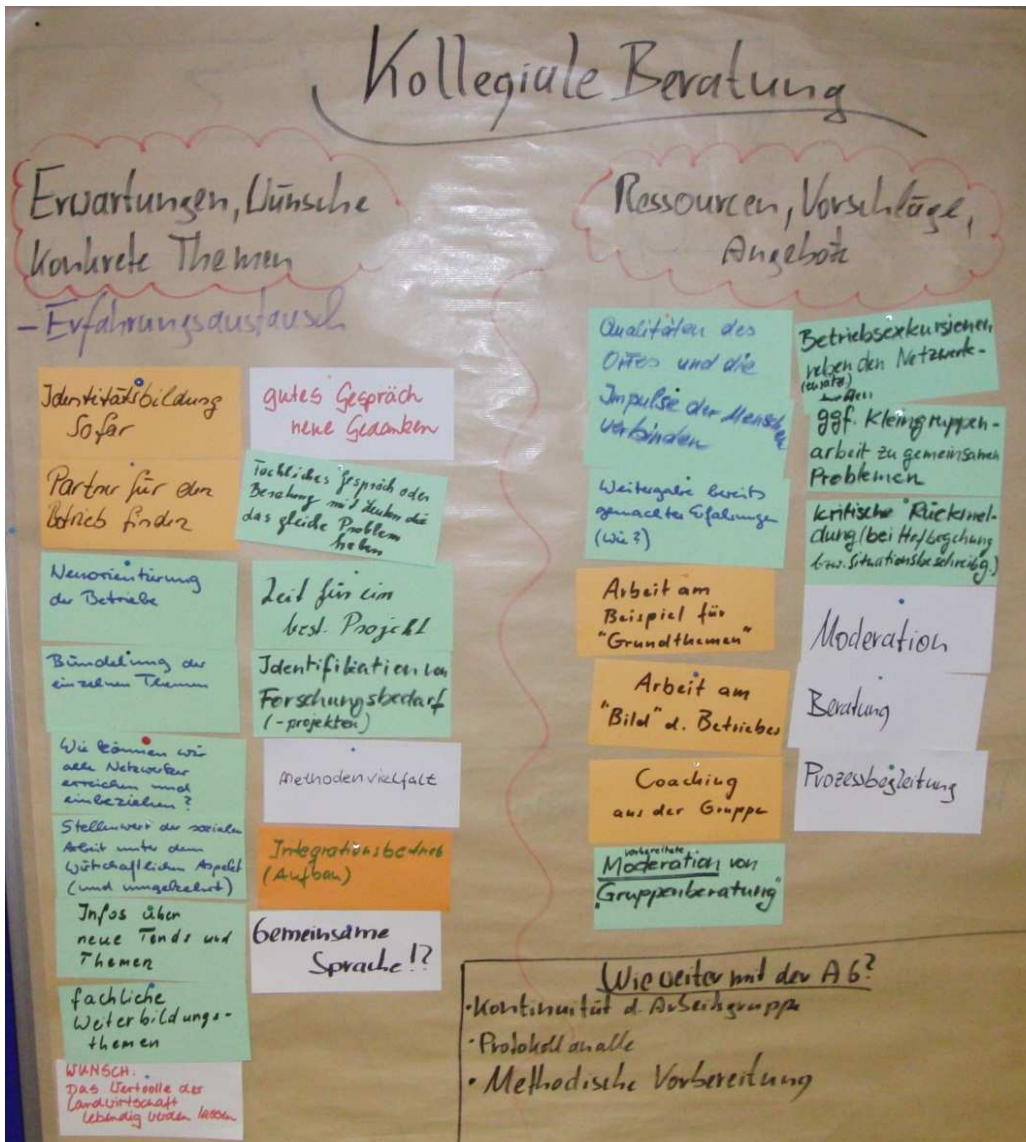 Kollegiale Beratung
Erwartungen, Wünsche
Konkrete Themen
- Erfahrungsaustausch
Identitätsbildung
Sofar
Partner für den
Betrieb finden
Neuorientierung
der Betriebe
Bündelung der
einzelnen Themen
Wie können wir
alle Netzwerker
erreichen und
einbeziehen?
Stellenwert der sozialen
Arbeit unter dem
wirtschaftlichen Aspekt
(und umgekehrt)
Infos über
neue Tends und
Themen
fachliche
Weiterbildungs-
themen
WUNSCH:
Das Wertvolle der
Landwirtschaft
lebendig werden lassen
gutes Gespräch
neue Gedanken
Fachliches Gespräch oder
Beratung mit Leuten die
das gleiche Problem
haben
Zeit für ein
best. Projekt
Identifikation von
Forschungsbedarf
(-projekten)
Methodenvielfalt
Integrationsbetrieb
(Aufbau)
Gemeinsame
Sprache!?
Ressourcen, Vorschläge,
Angebote
Qualitäten des
Ortes und die
Impulse der Menschen
verbinden
Weitergabe bereits
gemachter Erfahrungen
(wie?)
Arbeit am
Beispiel für
"Grundthemen"
Arbeit am
"Bild" d. Betriebes
Coaching
aus der Gruppe
vorbereitete
Moderation von
"Gruppenberatung"
Betriebsexkursionen
neben den Netzwerk-
treffen
ggf. Kleingruppen-
arbeit zu gemeinsamen
Problemen
kritische Rückmel-
dung (bei Hofbegehung
bzw. Situationsbeschreibg.)
Moderation
Beratung
Prozessbegleitung
Wie weiter mit der AG?
• Kontinuität d. Arbeitsgruppe
• Protokoll an alle
• Methodische Vorbereitung